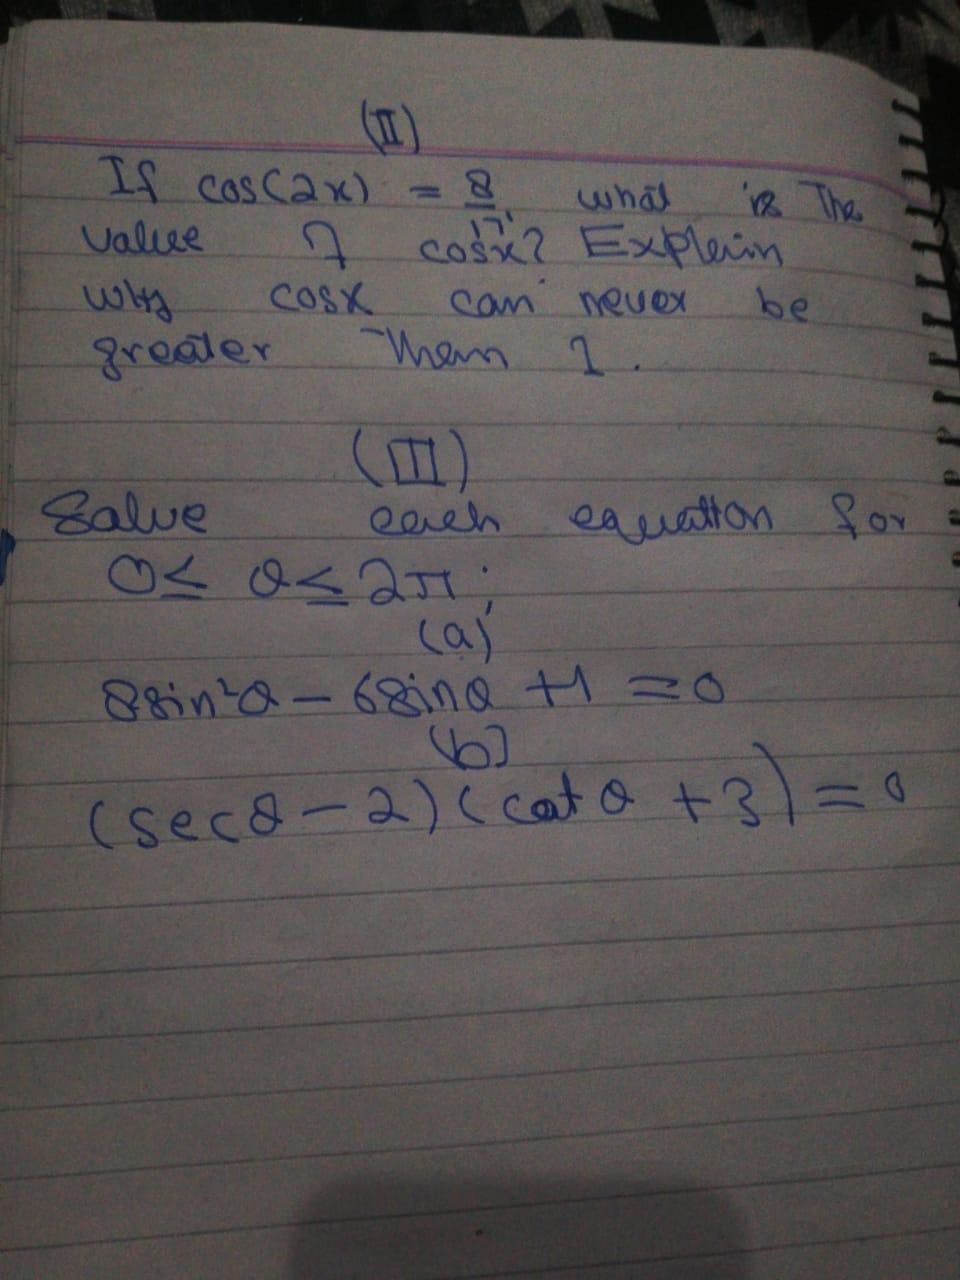 (II)
If cos(2x) = 8/17, what is The
value of cosx? Explain
why cosx can never be
greater Than 1.
(III)
Solve each equation for
0≤ θ ≤ 2π;
(a)
8sin²θ – 6sinθ +1 = 0
(b)
(secθ – 2)(cotθ + 3) = 0